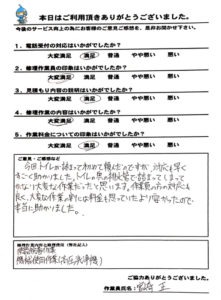 本日はご利用頂きありがとうございました。
今後のサービス向上の為にお客様のご意見ご感想を、是非お聞かせ下さい。
1. 電話受付の対応はいかがでしたか？
大変満足 満足 普通 やや悪い 悪い
2. 修理作業員の印象はいかがでしたか？
大変満足 満足 普通 やや悪い 悪い
3. 見積もり内容の説明はいかがでしたか？
大変満足 満足 普通 やや悪い 悪い
4. 修理作業の内容はいかがでしたか？
大変満足 満足 普通 やや悪い 悪い
5. 作業料金についての印象はいかがでしたか？
大変満足 満足 普通 やや悪い 悪い
ご意見・ご感想など
今回トイレが詰まって初めて頼んだのですが、対応も早く
すごく助かりました。トイレの奥の排水管で詰まってしまって
かなり大変な作業だったと思います。作業員の方の対応も
良く、大変な作業の割には料金も思っていたより安かったので
本当に助かりました。
ご協力ありがとうございました。
作業員氏名